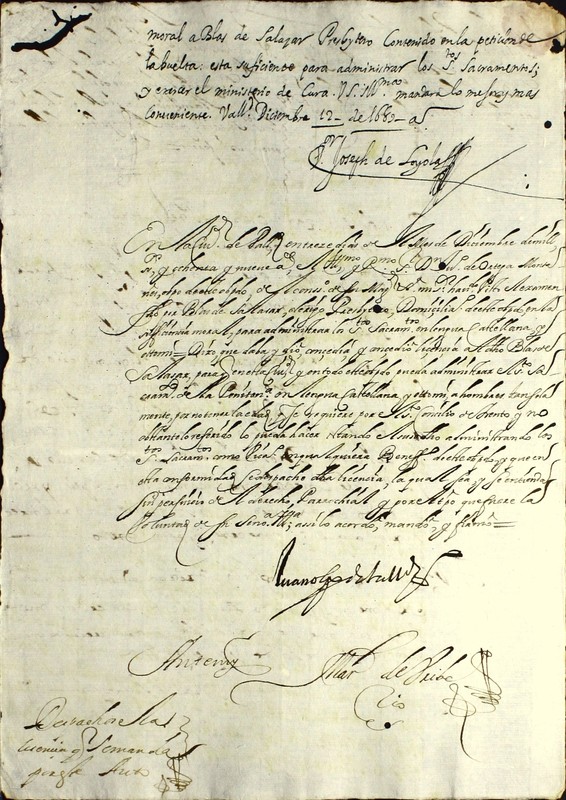 moral a Blas de Salazar Presbytero Contenido en la peticion de
la buelta: esta suficiente para administrar los Stos Sacramentos;
y exercer el ministerio de Cura. VS. Illma mandara lo mejor y mas
conveniente. Valld Diciembre 12 de 1689 as
Joseph de Loyola
En la Ciud de Valld en treze dias del Mes de Diciembre de mill
y ochenta y nueve as el Illmo y Rmo Sr Dn de Ortega
obispo de este obispado, del consejo de su Magd mi Sr haviendo visto el examen
por Blas de Salazar, clerigo Presbytero, Domiciliario de este obispado en la
suficiencia moral, para administrar los Stos Sacramtos en lengua Castellana y
ottomi = Dixo que daba y dio, concedia y concedio licencia a dicho Blas de
Salazar, para q en esta Ciud y en todo este obispado pueda administrar el Sto Sa
cramto de la Penitena en lengua Castellana, y ottomi, a hombres tan sola
mente, por no tener la edad q se requiere por el Sto Concilio de Trento, y no
obstante lo referido lo pueda hacer administrando los
Stos Sacramtos como Cura en qualquiera Benefo de este obispado, y que en
esta conformidad se despache dha licencia, la qual sea y se entienda
sin perjuicio del derecho Parrochial y por el tiempo que fuere la
voluntad de su Sria Illma; assi lo acordo, mando, y firmo =
Juan Obpo de Valld
Ante mi
de Uribe
Despachose la
licencia q se manda
por este Auto